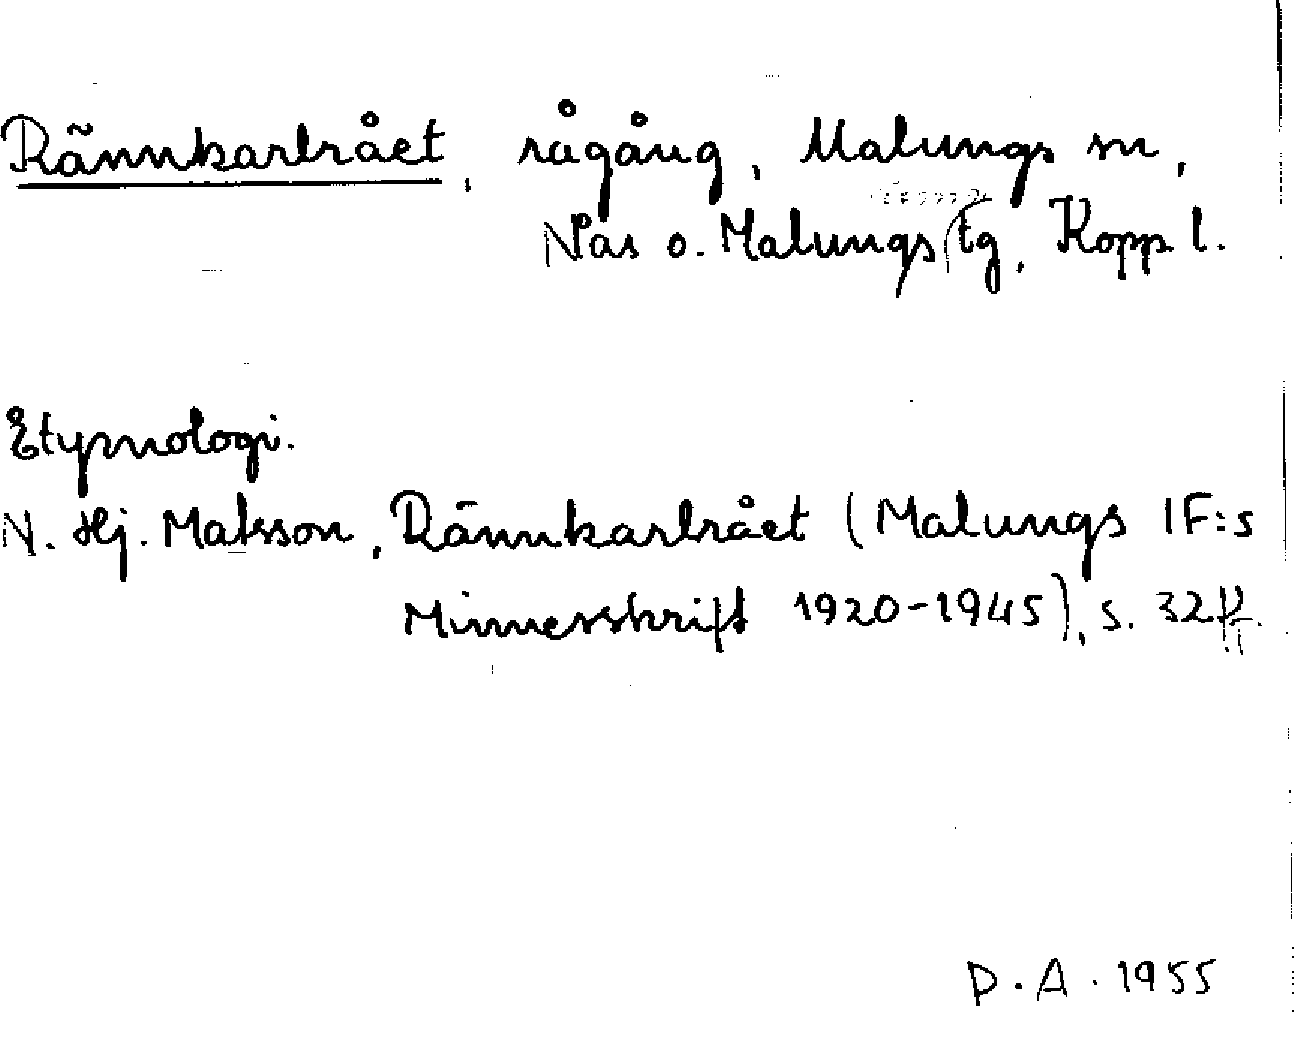 Rännkarlrået, rågång, Malungs sn,
Näs o. Malungs tg, Kopp. l.
Etymologi.
N. Hj. Matsson, Rännkarlrået (Malungs IF:s
Minnesskrift 1920-1945), s. 32 ff.
D. A. 1955